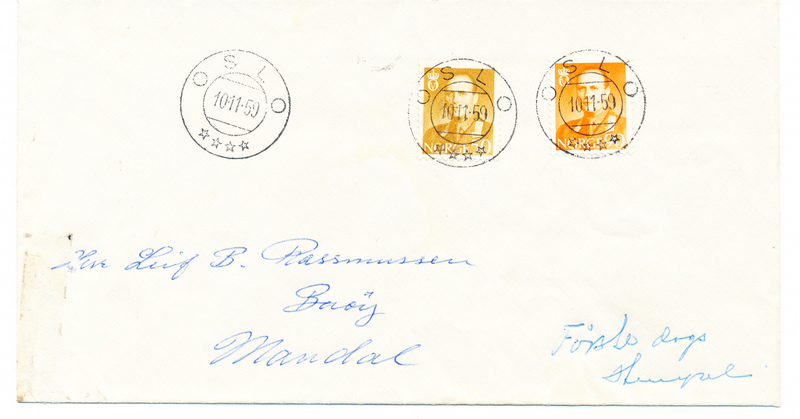 OSLO
10·11·59
OSLO
10·11·59
OSLO
10·11·59
NORGE
NORGE
Leif B. Rassmussen
Mandal
Første dags
Stempel